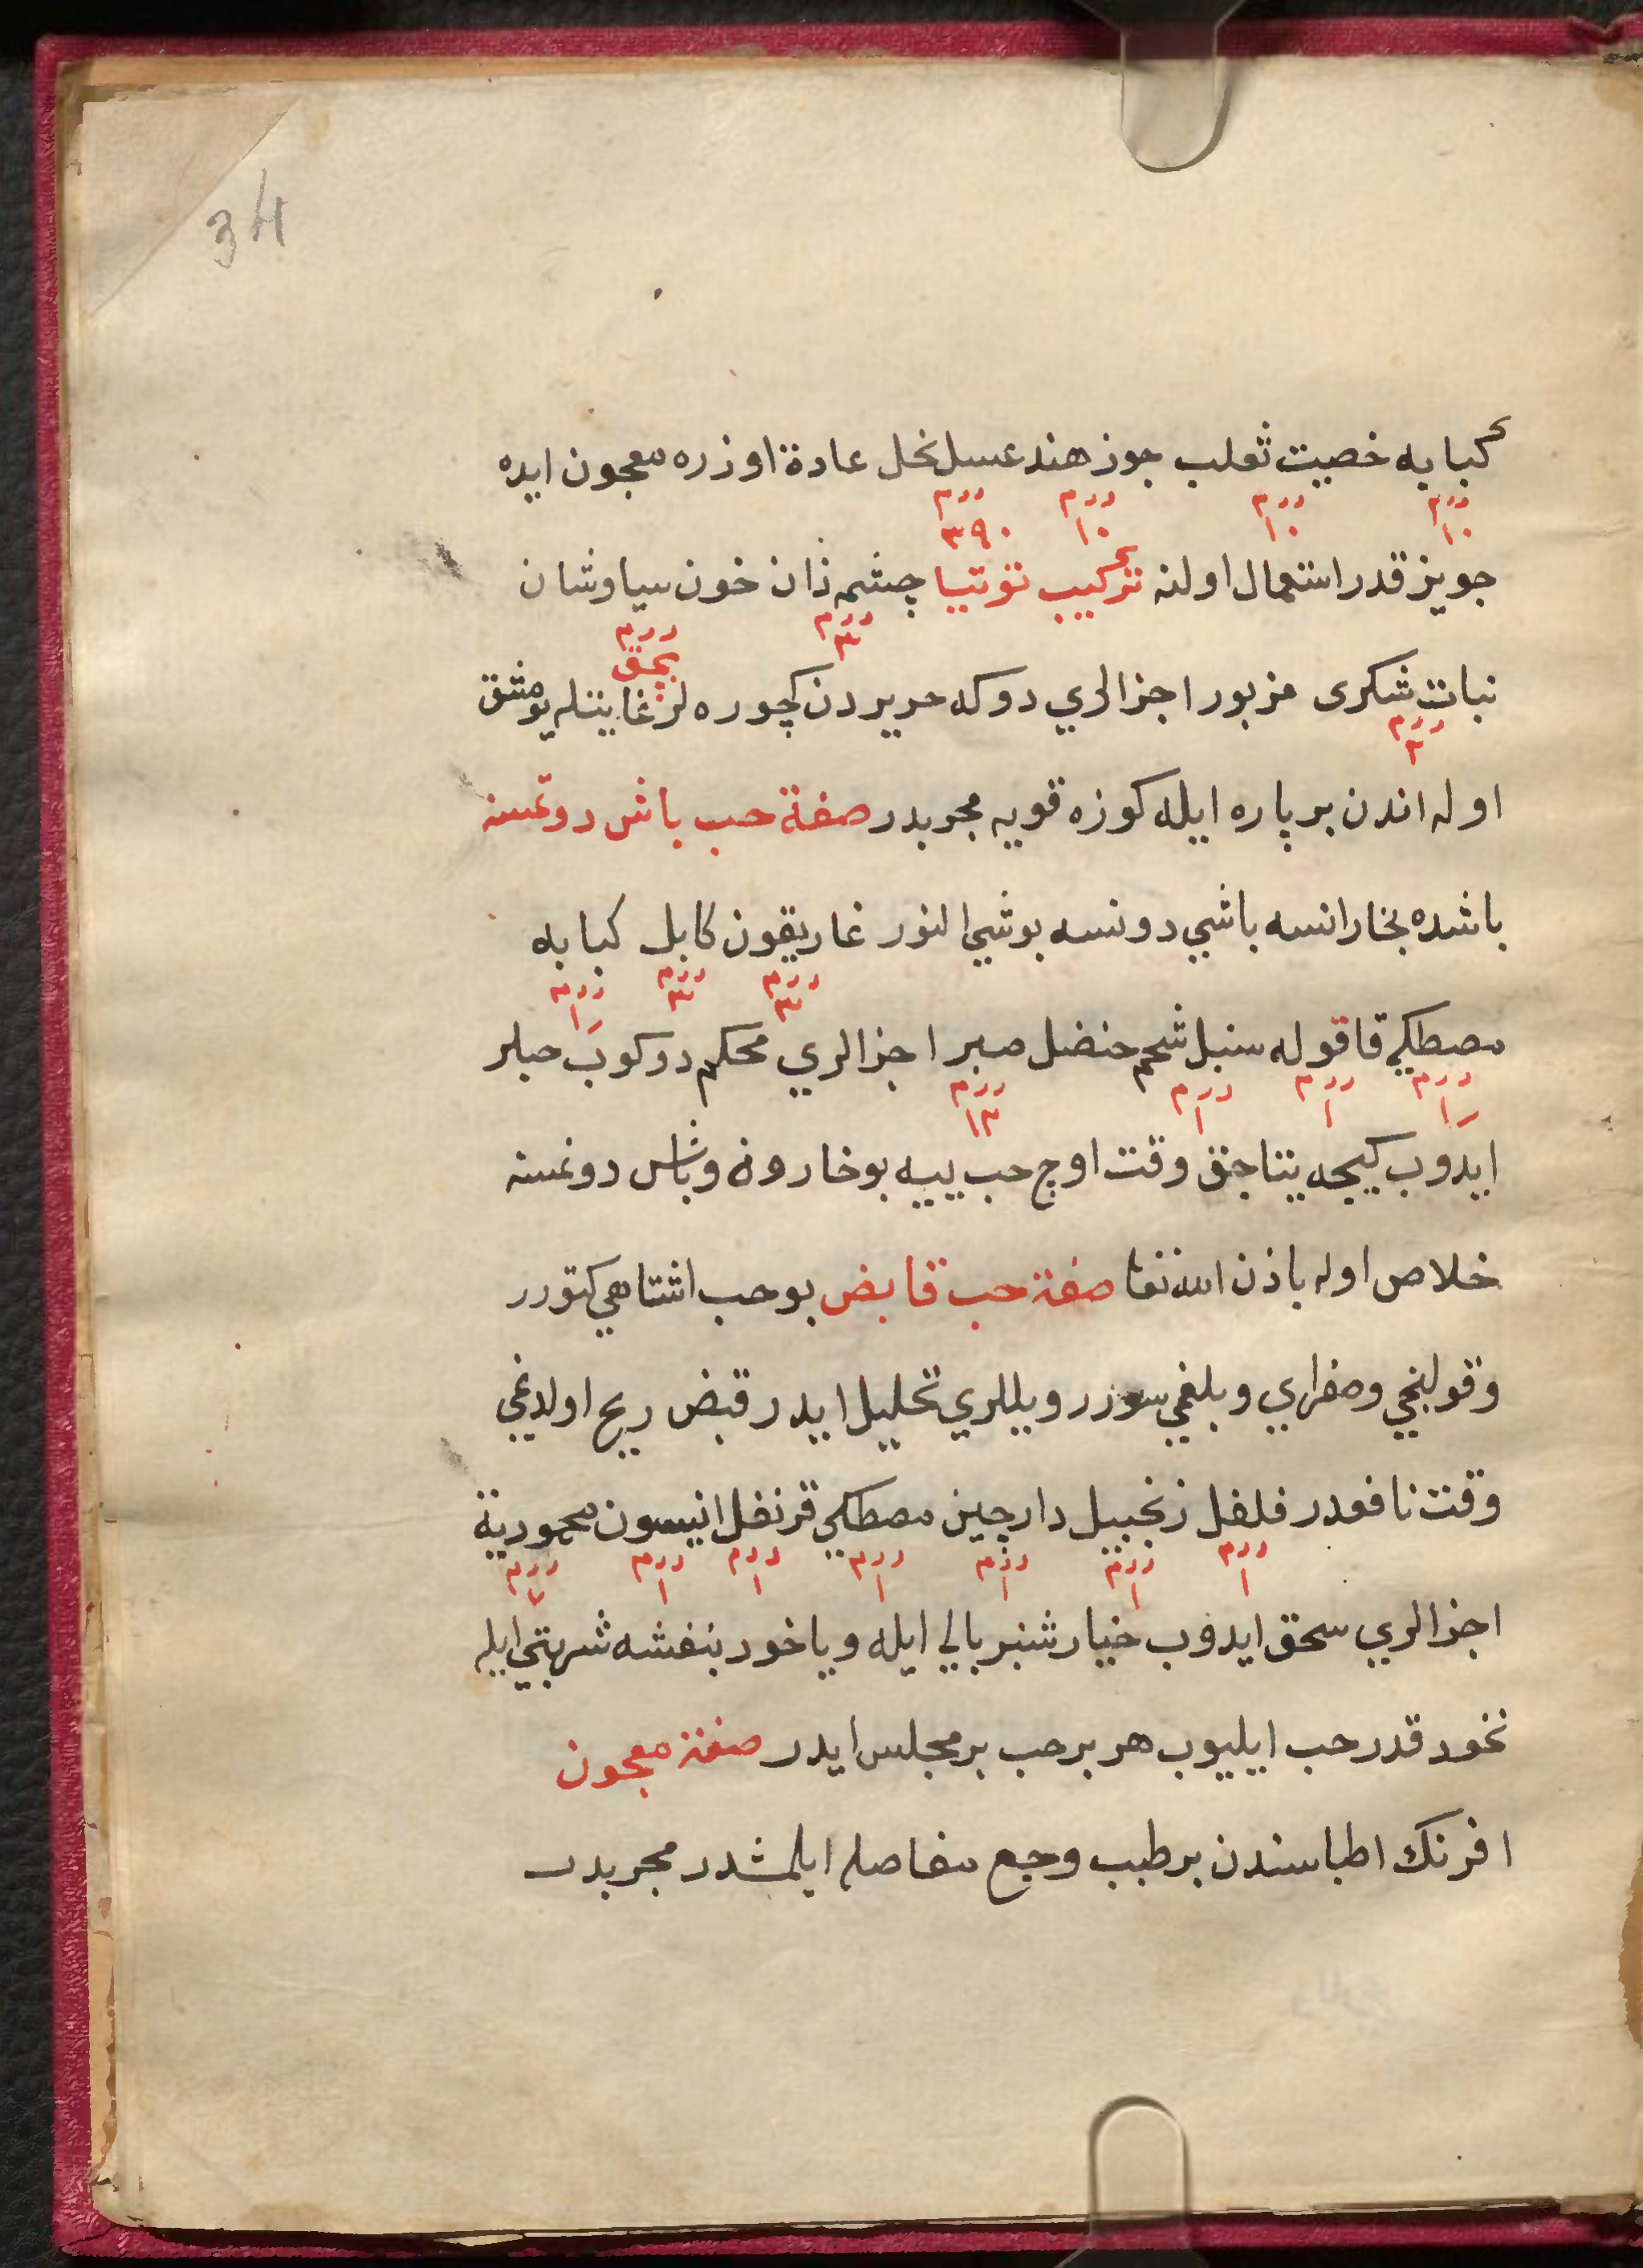 34
كبابه خصيت ثعلب جوز هند عسل نحل عادة اوزره معجون ايده
درم ١٠ درم ١٠ درم ١٠ درم ٣٩٠
جويز قدر استعمال اولنه تركيب توتيا چشم ذان خون سياوشان
درم ٣ درم بچق
نبات شكرى مزبور اجزالري دوكه حريردن كچوره لر غايتله يومشق
درم ٢
اوله اندن بر پاره ايله كوزه قويه مجربدر صفة حب باش دونمسنه
باشده بخار انسه باشي دونسه بو شيئ النور غاريقون كابل كبابه
درم ٣ درم ٣ درم ١
مصطكي قاقوله سنبل شحم حنضل صبر اجزالري محكم دوكوب حبلر
درم ١ درم ١ درم ١ درم ١٣
ايدوب كيجه يتاجق وقت اوج حب ييه بوخارون وباش دونمسنه
خلاص اوله باذن الله تعا صفة حب قابض بو حب اشتاهي كتورر
وقولنجي وصفراىي وبلغمي سورر ويللري تحليل ايدر قبض ريح اولدغي
وقت نافعدر فلفل زنجبيل دارچين مصطكي قرنفل انيسون محمودية
درم ١ درم ١ درم ١ درم ١ درم ١ درم ١ درم ٧
اجزالري سحق ايدوب خيارشنبر بالي ايله وياخود بنفشه شربتي ايله
نخود قدر حب ايليوب هر بر حب بر مجلس ايدر صفة معجون
افرنك اطباسندن بر طبيب وجع مفاصله ايلمشدر مجربدر